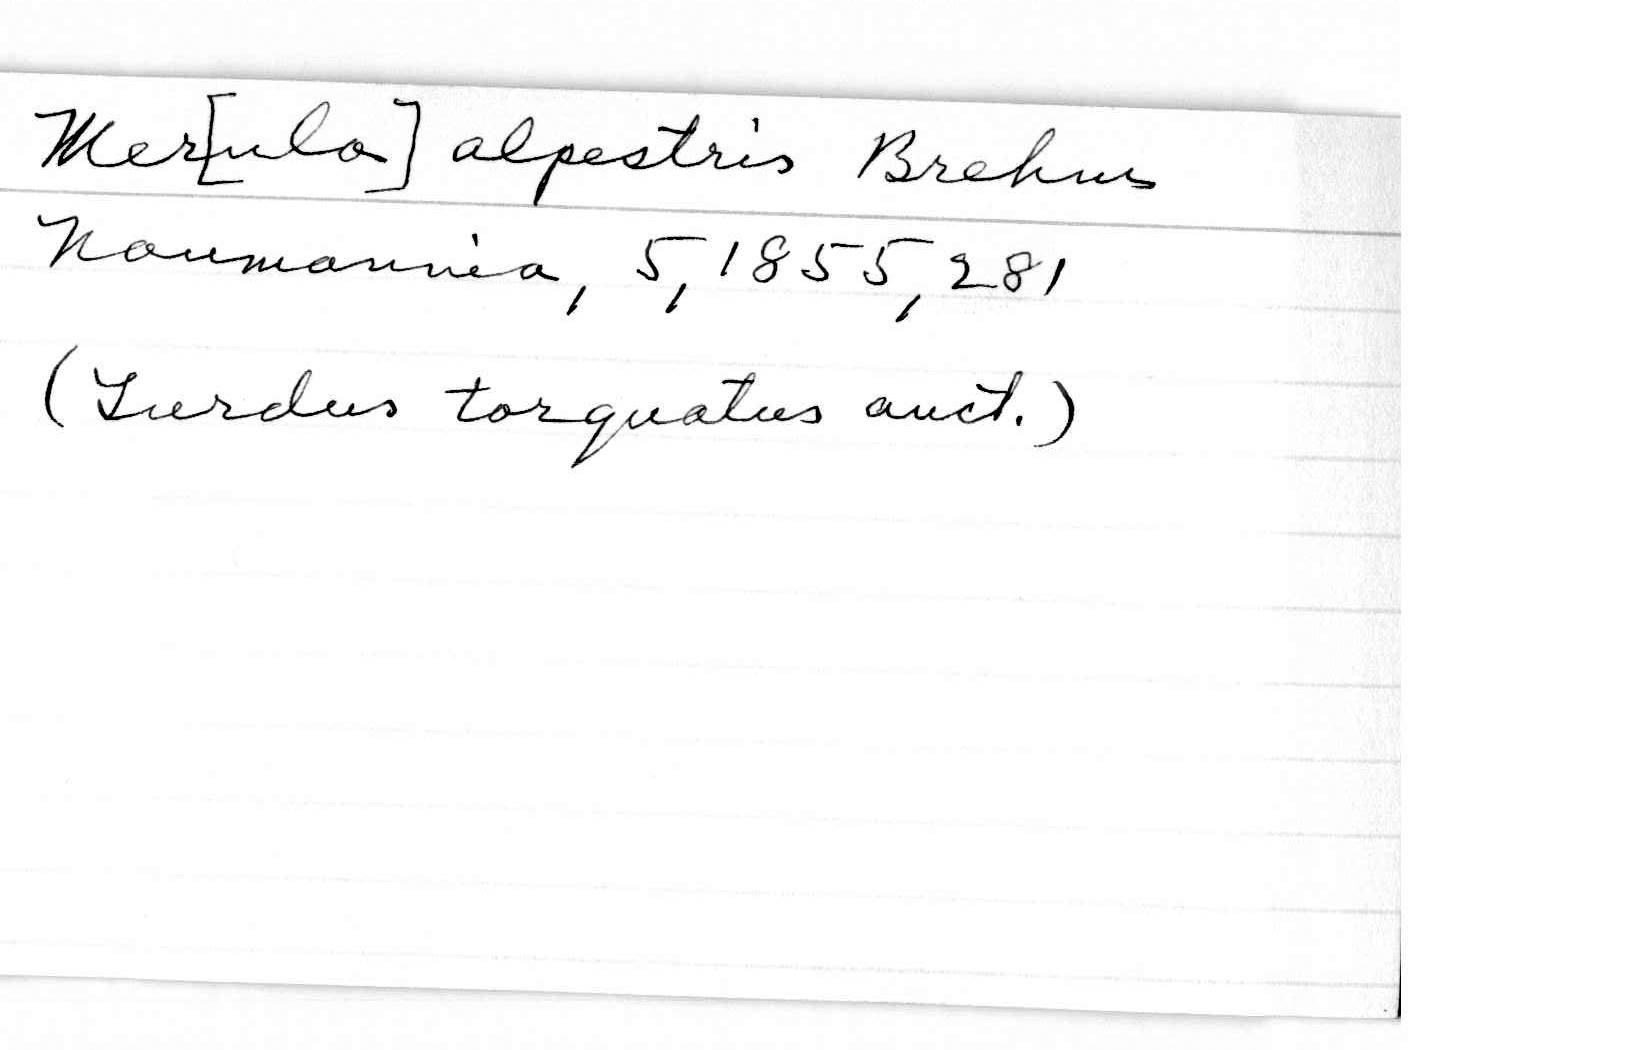 Mer[ula] alpestris Brehm
Naumannia, 5, 1855, 281
(Turdus torquatus auct.)